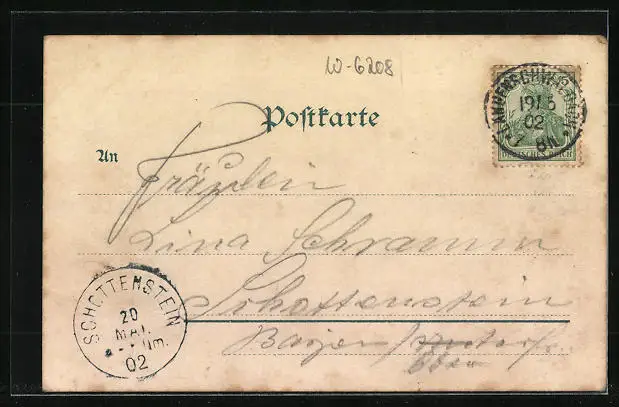 W-6208
Postkarte
19/5
02
DEUTSCHES REICH
An
Fräulein
Lina Schramm
Schottenstein
SCHOTTENSTEIN
20
MAI.
02